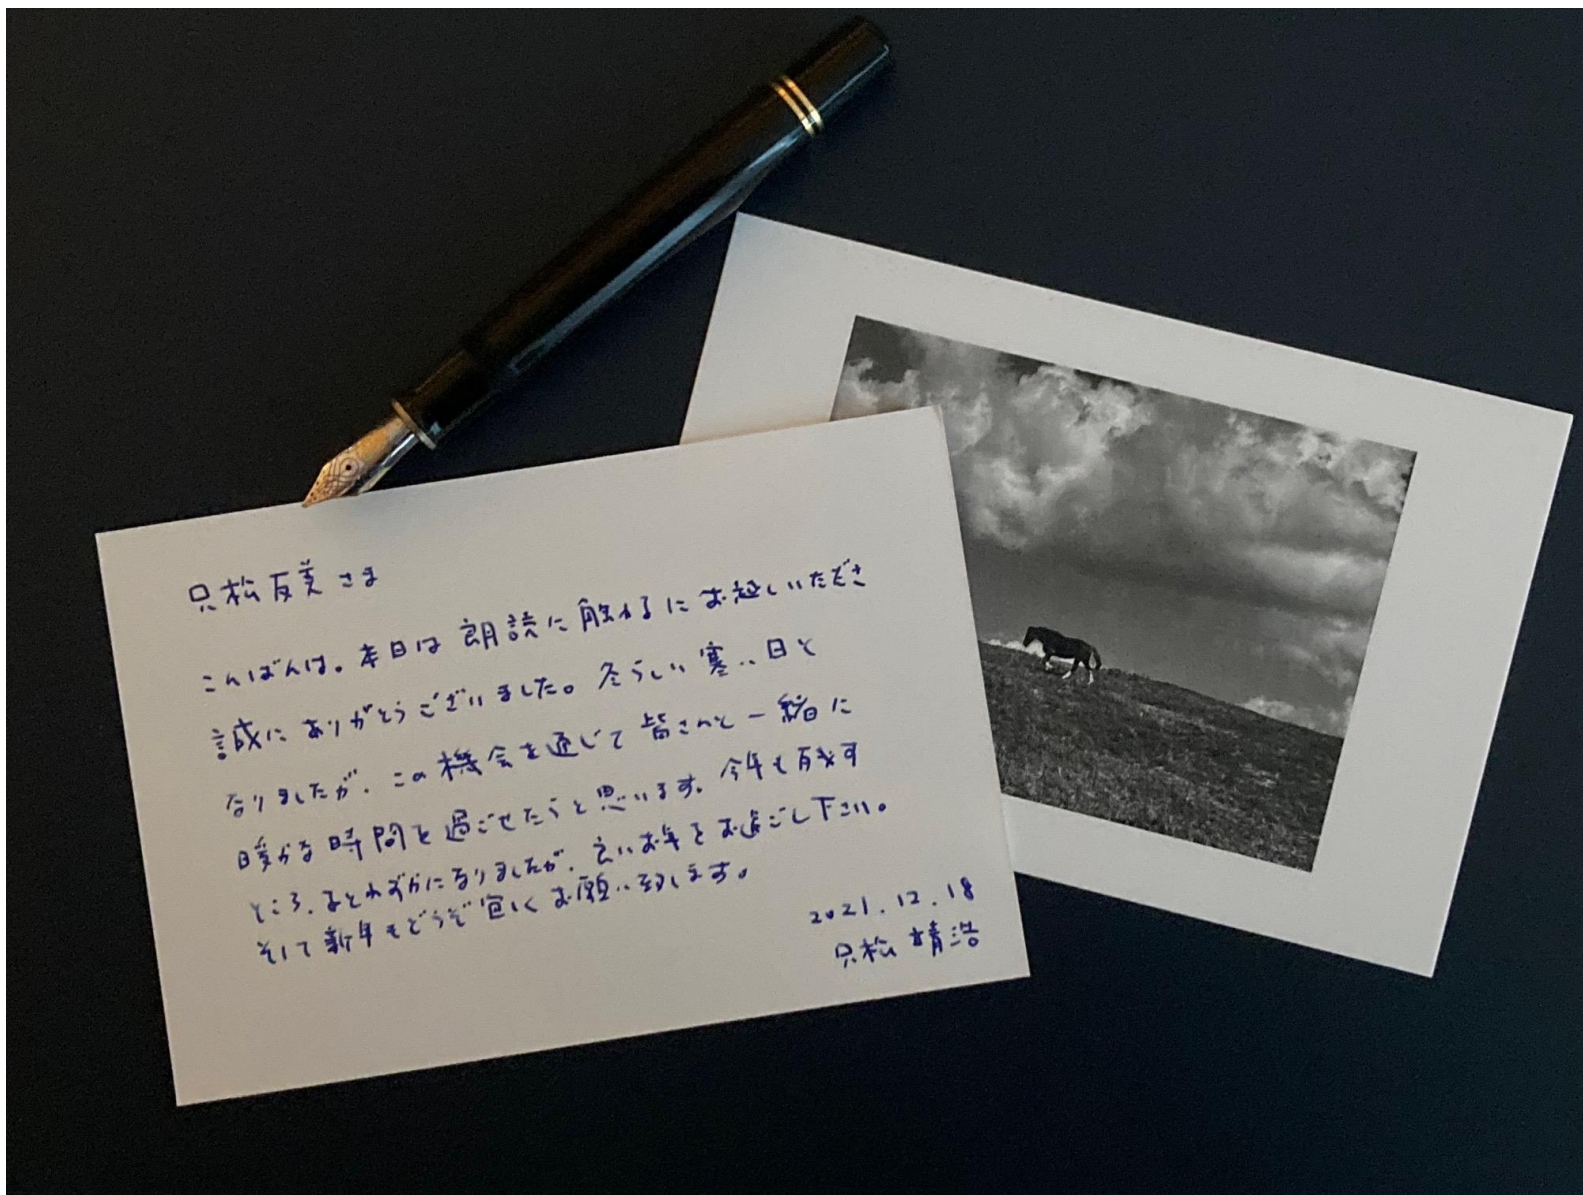 只松友美さま
こんばんは。本日は朗読に触れるにお越しいただき
誠にありがとうございました。冬らしい寒い日と
なりましたが、この機会を通じて皆さんと一緒に
暖かな時間を過ごせたらと思います。今年も残す
ところ、あとわずかになりましたが、良いお年をお過ごし下さい。
そして新年もどうぞ宜しくお願い致します。
2021.12.18
只松靖浩